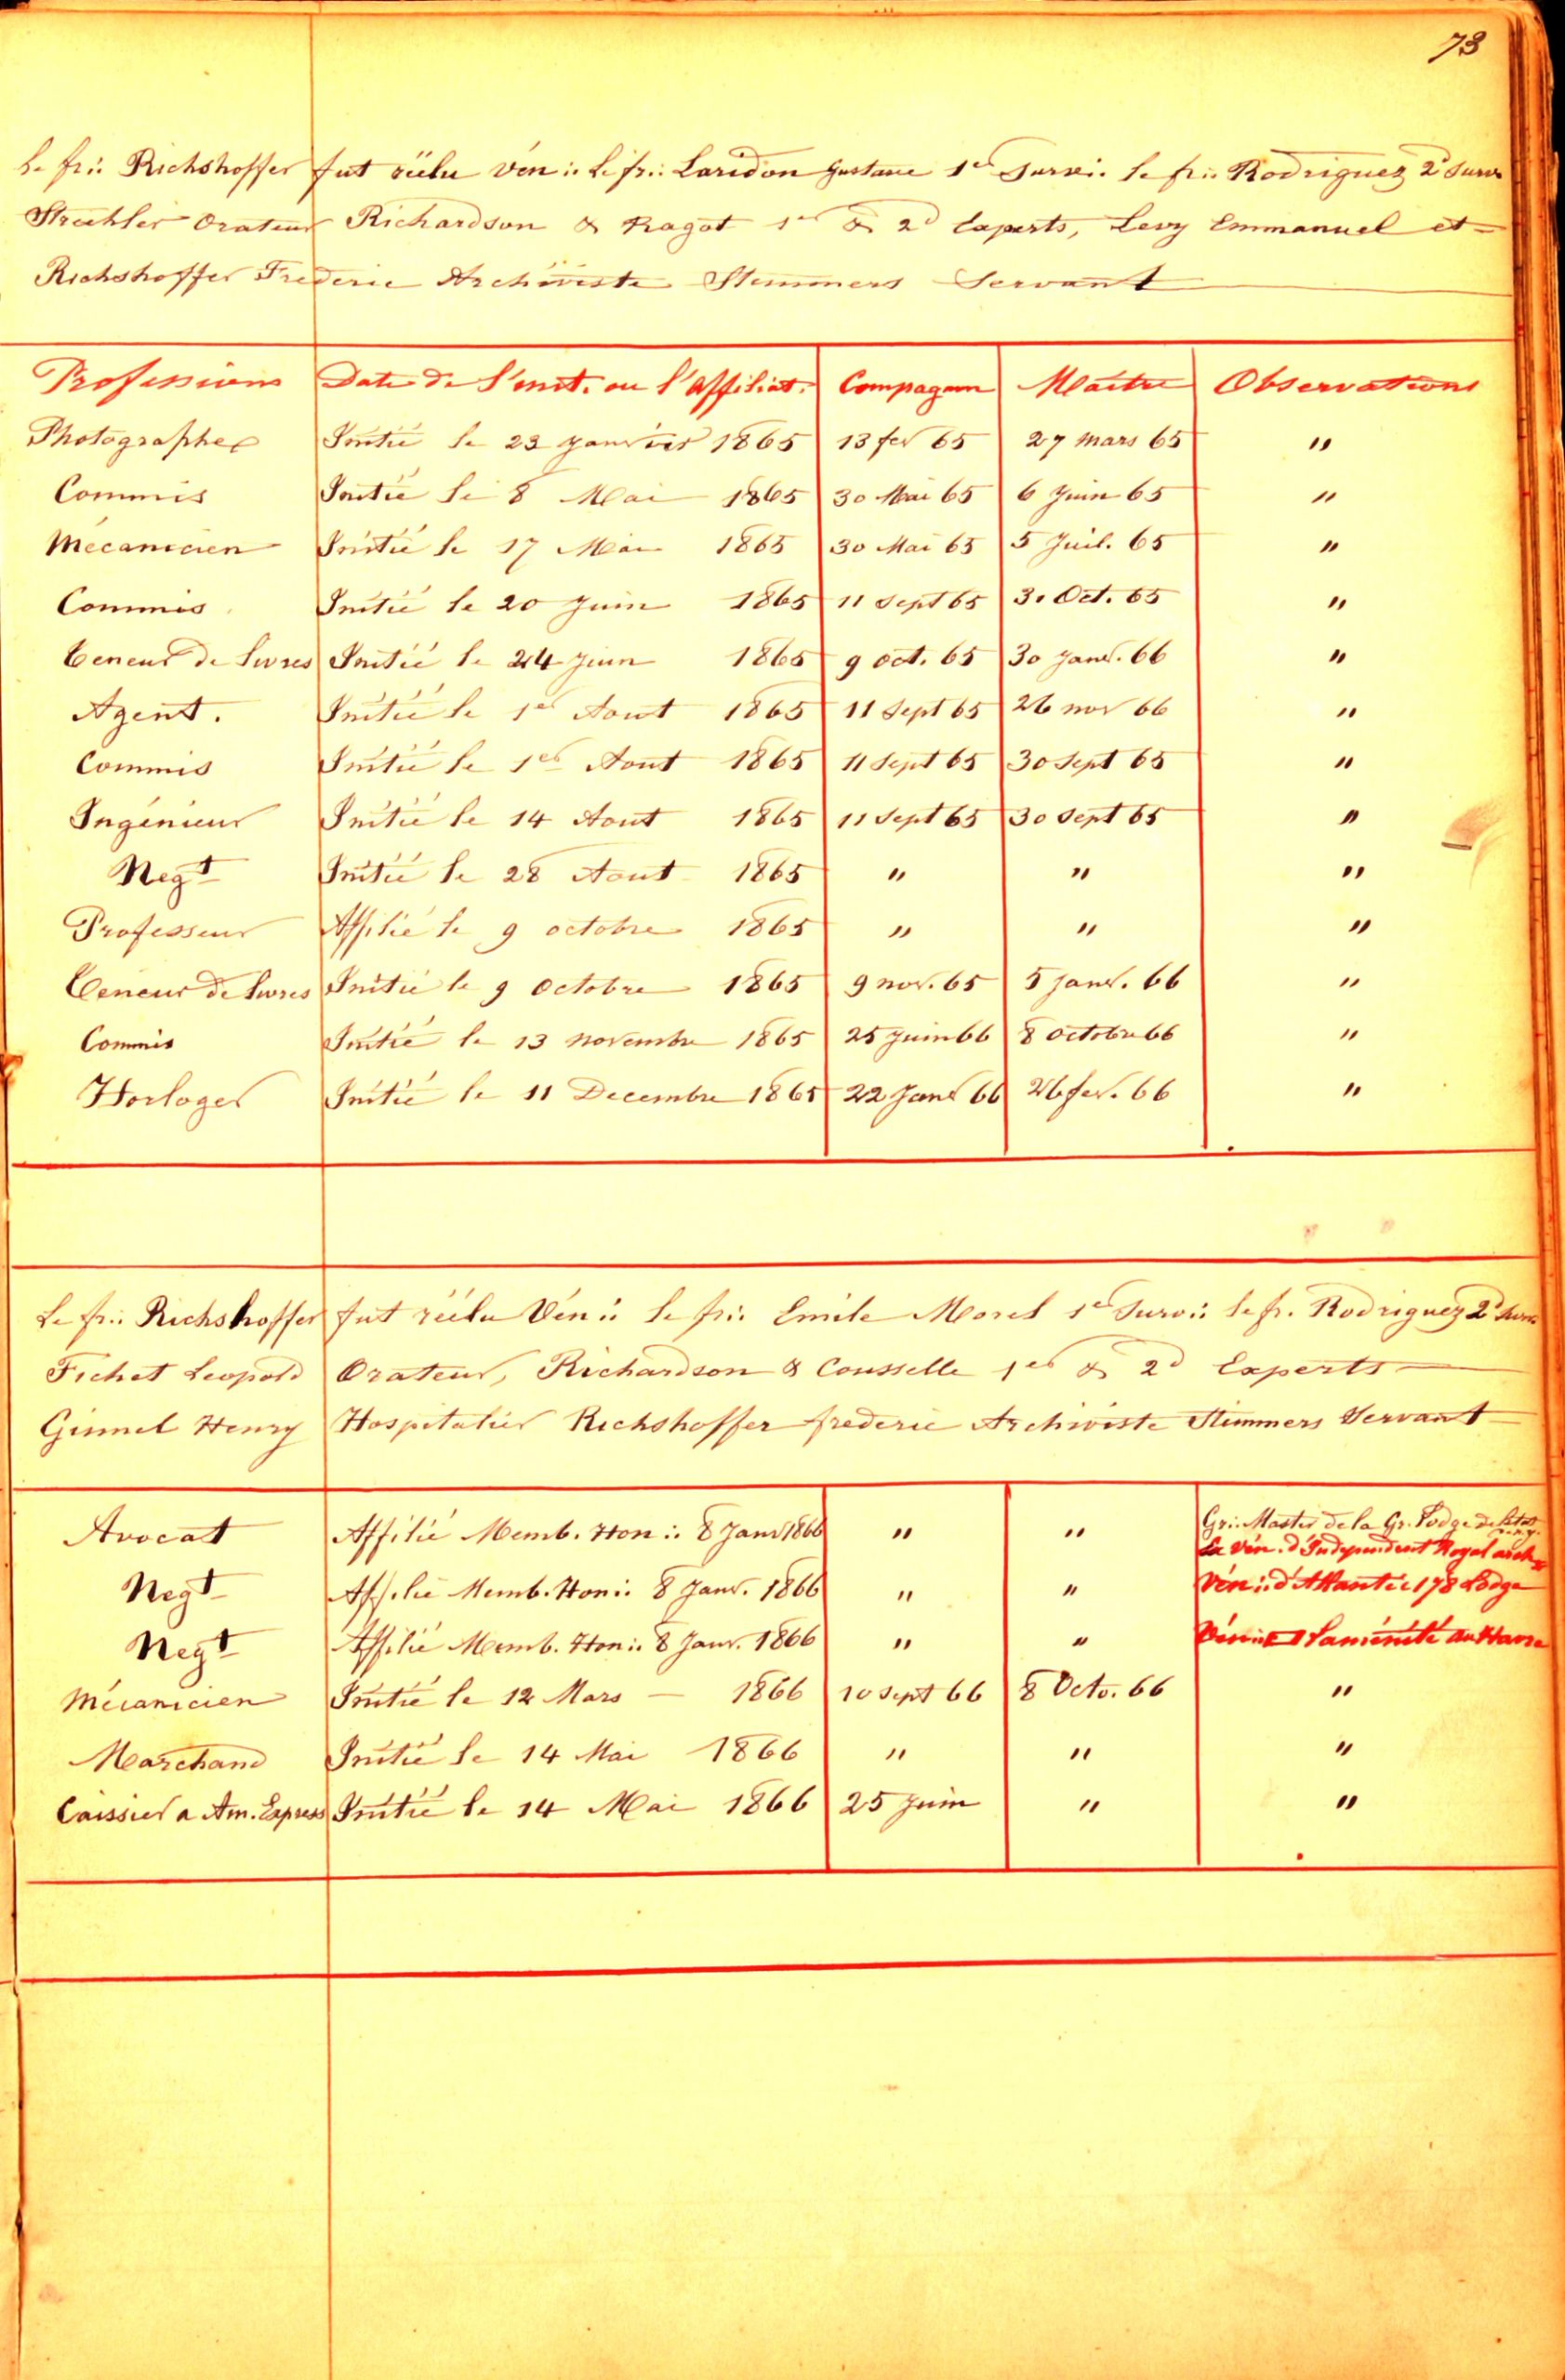 73
Le fr∴ Richshoffer fut réélu Vén∴ Le fr∴ Laridon Gustave 1er Surv∴ le fr∴ Rodriguez 2d Surv
Straehler Orateur Richardson & Ragot 1er & 2d Experts, Levy Emmanuel et
Richshoffer Frederic Archiviste Stemmers Servant
Professions Date de l'init. ou l'affiliat. Compagnon Maitre Observations
Photographe Initié le 23 Janvier 1865 13 fev 65 27 mars 65 "
Commis Initié le 8 Mai 1865 30 Mai 65 6 Juin 65 "
Mécanicien Initié le 17 Mai 1865 30 Mai 65 5 Juil. 65 "
Commis Initié le 20 Juin 1865 11 Sept 65 31 Oct. 65 "
Teneur de Livres Initié le 24 Juin 1865 9 Oct. 65 30 Janv. 66 "
Agent. Initié le 1er Aout 1865 11 Sept 65 26 nov 66 "
Commis Initié le 1er Aout 1865 11 Sept 65 30 Sept 65 "
Ingénieur Initié le 14 Aout 1865 11 Sept 65 30 Sept 65 "
Negt Initié le 28 Aout 1865 " " "
Professeur Affilié le 9 octobre 1865 " " "
Teneur de Livres Initié le 9 Octobre 1865 9 nov. 65 5 Janv. 66 "
Commis Initié le 13 Novembre 1865 25 Juin 66 8 Octobre 66 "
Horloger Initié le 11 Decembre 1865 22 Janv 66 26 fev. 66 "
Le fr∴ Richshoffer fut réélu Vén∴ le fr∴ Emile Morel 1er Surv∴ le fr. Rodriguez 2d Surv
Fichet Leopold Orateur, Richardson & Cousselle 1er & 2d Experts
Gimel Henry Hospitalier Richshoffer frederic Archiviste Stemmers Servant
Avocat Affilié Memb. Hon∴ 8 Janv 1866 " " Gr∴ Master de la Gr. Lodge de l'etat N.Y.
Ex Vén. d'Independent Royal arch
Negt Affilié Memb. Hon∴ 8 Janv. 1866 " " Vén∴ d'Atlantic 178 Lodge
Negt Affilié Memb. Hon∴ 8 Janv. 1866 " " Vén∴ l'aménité au Havre
Mécanicien Initié le 12 Mars 1866 10 Sept 66 8 Octo. 66 "
Marchand Initié le 14 Mai 1866 " " "
Caissier a Am. Express Initié le 14 Mai 1866 25 Juin " "